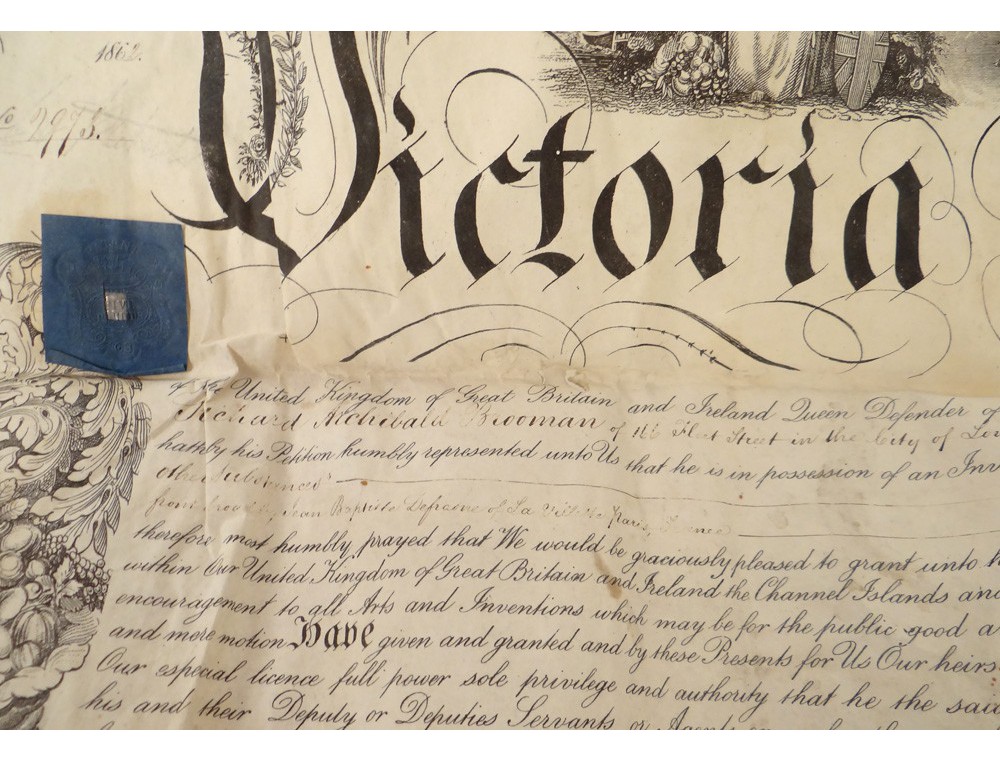 1862.
No 2975.
Victoria
of the United Kingdom of Great Britain and Ireland Queen Defender of
Richard Archibald Brooman of 166 Fleet Street in the City of Lon
hath by his Petition humbly represented unto Us that he is in possession of an Inv
other Substances
Jean Baptiste of La Villette Paris France
therefore most humbly prayed that We would be graciously pleased to grant unto h
within Our United Kingdom of Great Britain and Ireland the Channel Islands and
encouragement to all Arts and Inventions which may be for the public good a
and mere motion Have given and granted and by these Presents for Us Our heirs
Our especial licence full power sole privilege and authority that he the said
his and their Deputy or Deputies Servants or Agents